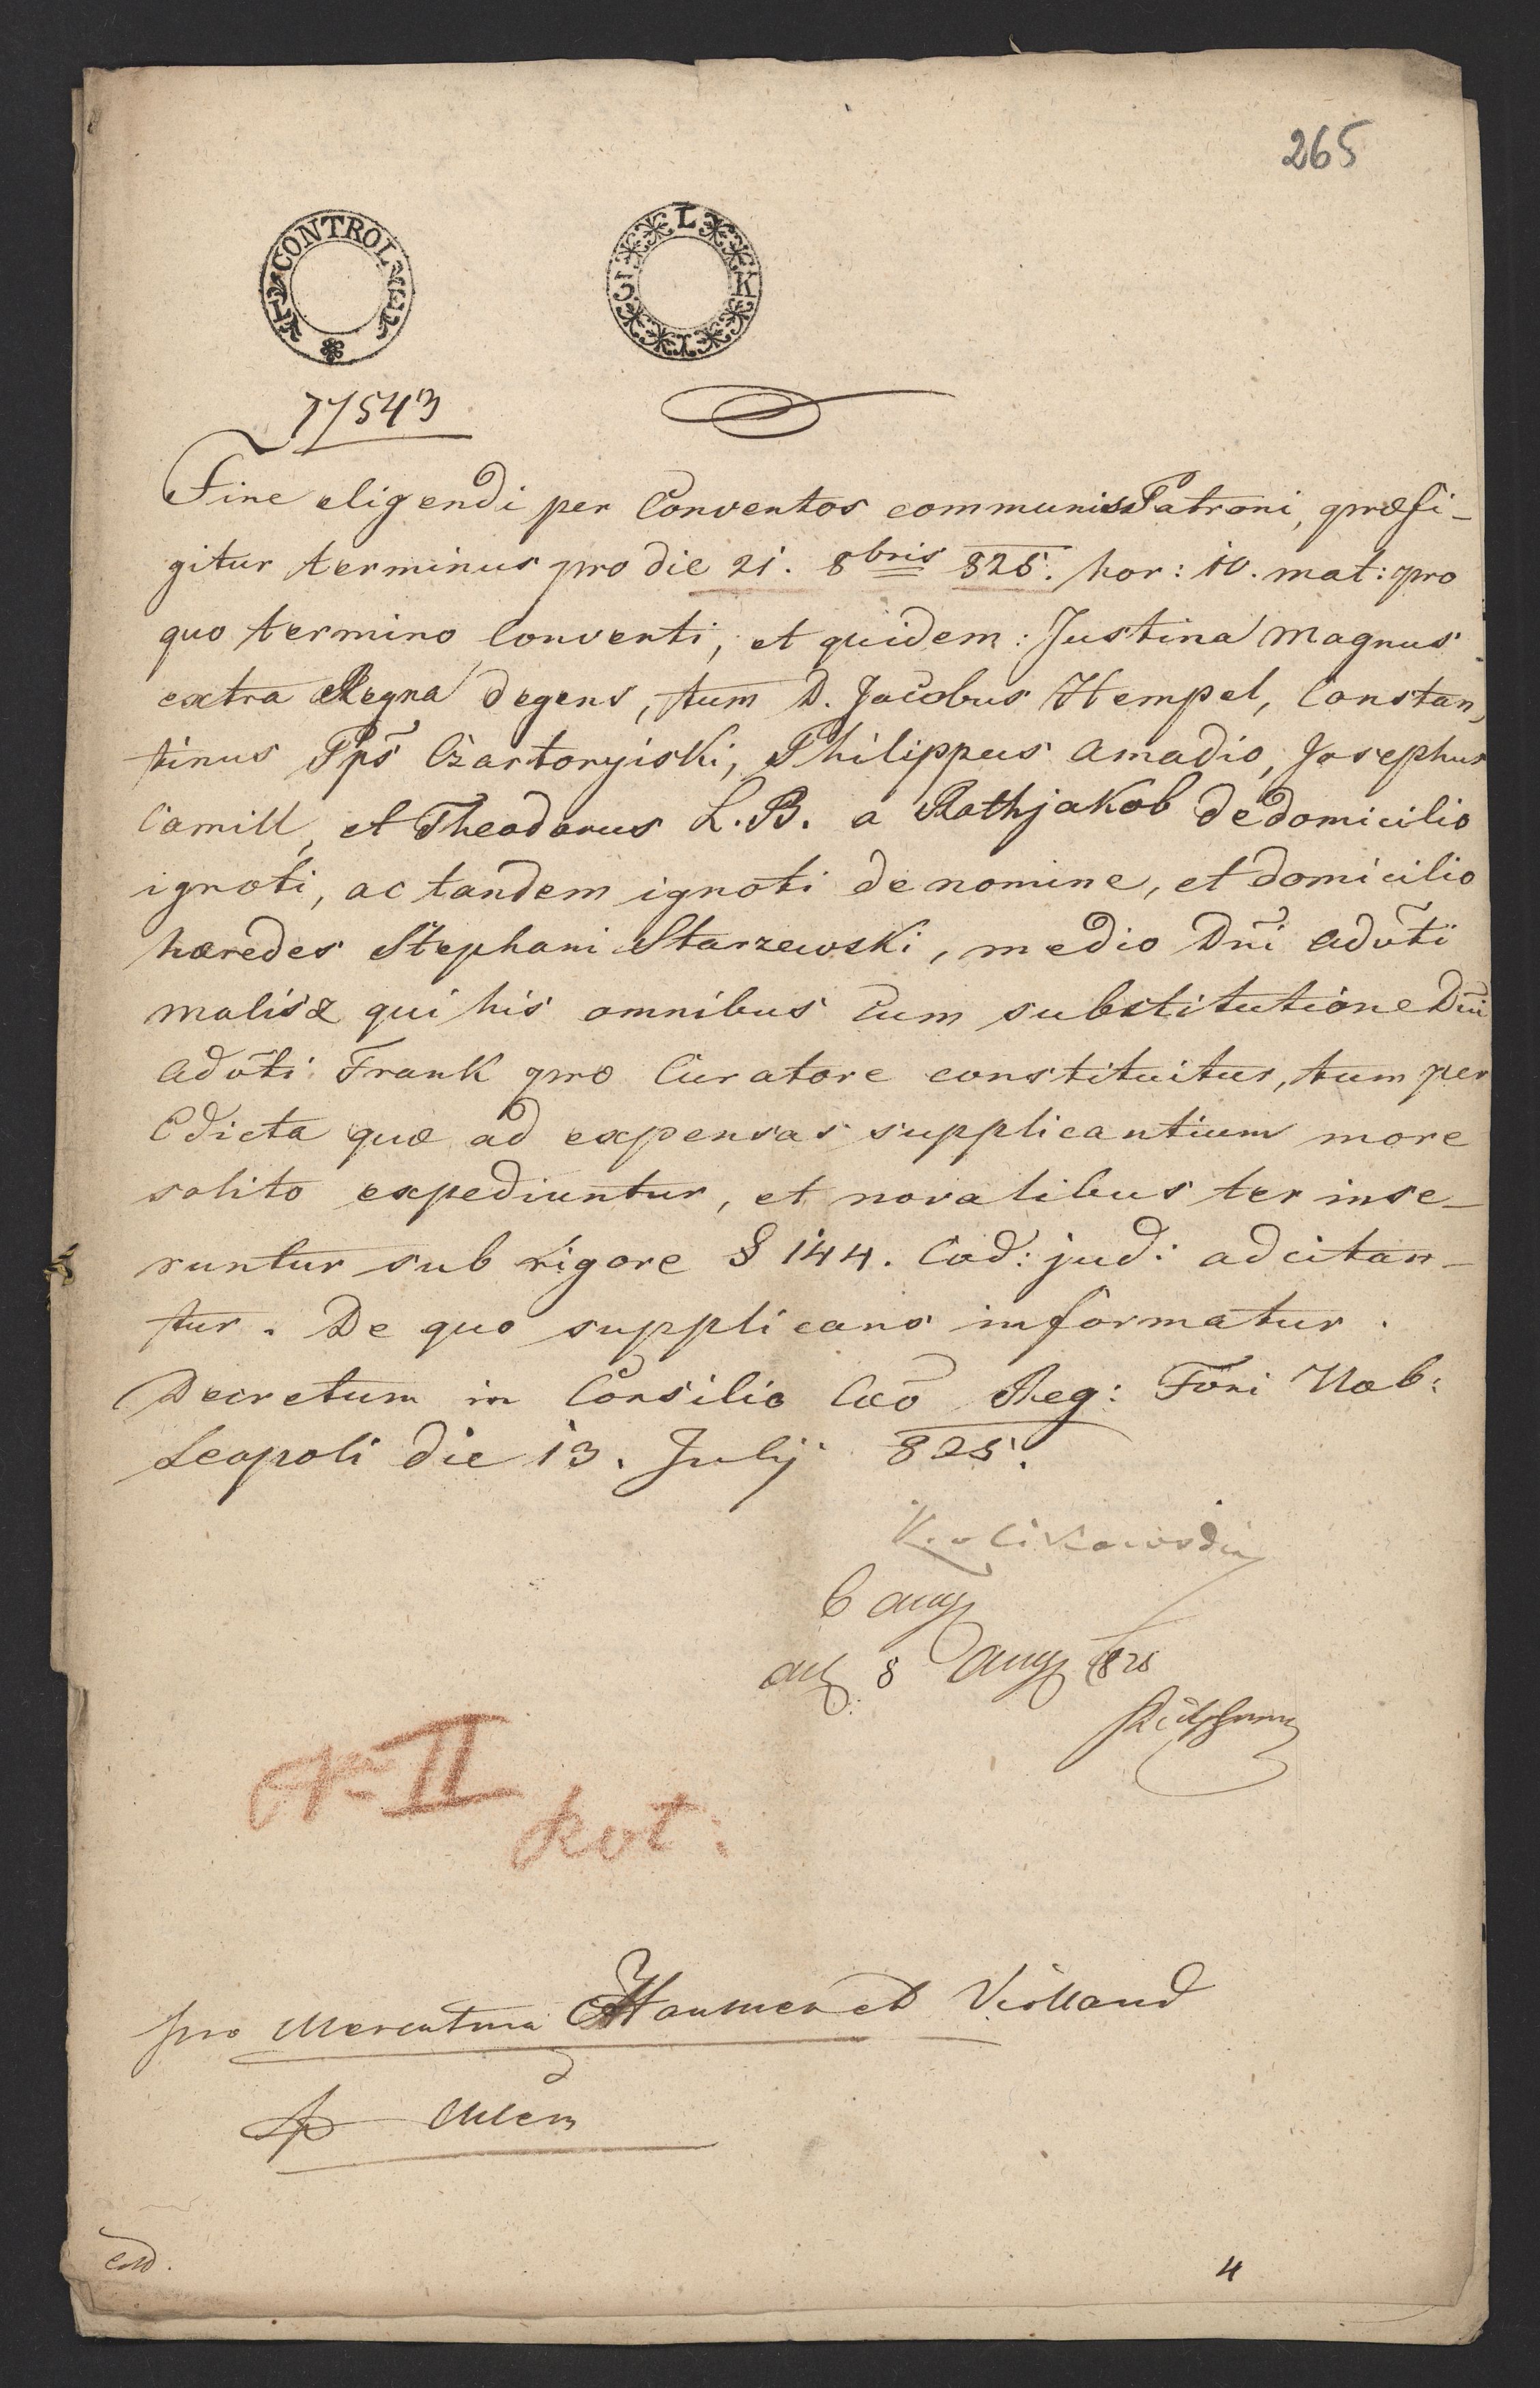 265
CONTROL
L K
17543
Fine eligendi per Conventos communis Patroni, præfi-
gitur terminus pro die 21. 8bris 825. hor: 10. mat: pro
quo termino Conventi, et quidem: Justina Magnus
extra Regna degens, tum D. Jacobus Hempel, Constan,
tinus Pps̃ Czartoryiski, Philippus Amadio, Josephus
Camill, et Theodorus L. B. a Rothjakob de domicilio
ignoti, ac tandem ignoti de nomine, et domicilio
hæredes Stephani Starzewski, medio Dñi Advti
Malisz qui his omnibus cum substitutione Dñi
Advti Frank pro Curatore constituitur, tum per
Edicta quæ ad expensas supplicantium more
solito expediuntur, et novalibus ter inse-
runtur sub rigore § 144. Cod: jud: adcitan-
tur. De quo supplicans informatur.
Decretum in Consilio Cæo Reg: Fori Nob:
Leopoli die 13. Julij 825.
6 aug
8 aug 825
N II
Rot:
pro Mercatura Hausner et Violland
4